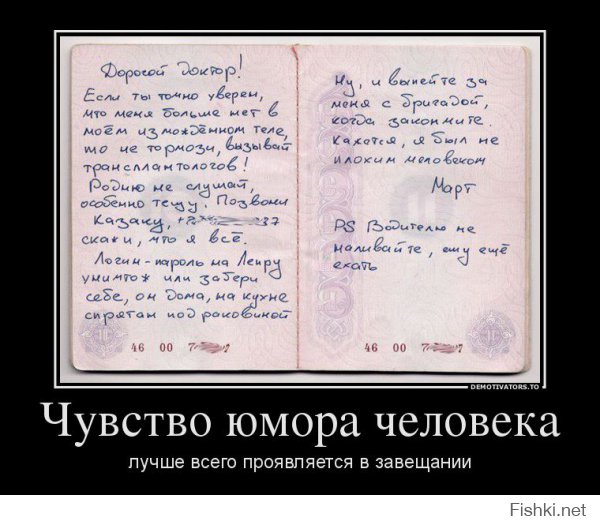 Дорогой доктор!
Если ты точно уверен,
что меня больше нет в
моём измождённом теле,
то не тормози, вызывай
трансплантологов!
Родню не слушай,
особенно тещу. Позвони
Казаку, +7 37
скажи, что я всё.
Логин-пароль на Лепру
уничтож или забери
себе, он дома, на кухне
спрятан под раковиной
46 00 7
Ну, и выпейте за
меня с бригадой,
когда закончите.
Кажется, я был не
плохим человеком
Март
PS Водителю не
наливайте, ему ещё
ехать
46 00 7
DEMOTIVATORS.TO
Чувство юмора человека
лучше всего проявляется в завещании
Fishki.net